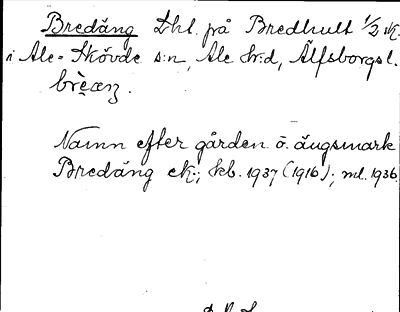 Bredäng Lhl. på Bredhult 1/2 mt.
i Ale-Skövde s:n, Ale h:d, Älfsborgs l.
brèæŋ.
Namn efter gården o. ängsmark
Bredäng ek.; kb. 1937 (1916); ml. 1936